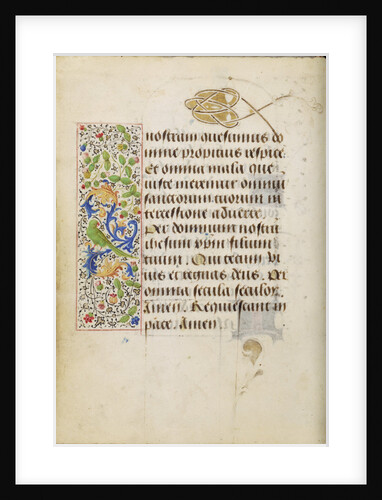 nostram quesumus do
mine propicius respice:
Et omnia mala que
iuste meremur omniū
sanctorum tuorum in
tercessione aduerte. Per
dominum nostrū
ihesum xp̄m filium
tuum. Qui tecum vi
uit et regnat deus. Per
omnia secula seculor
Amen. Requiescant in
pace. Amen